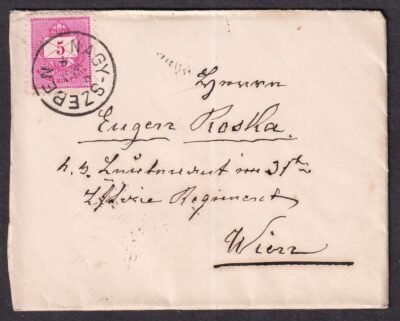 5
NAGY-SZEBEN
Herrn
Eugen Roska.
Lieutenant im 31ten
Regiment
Wien